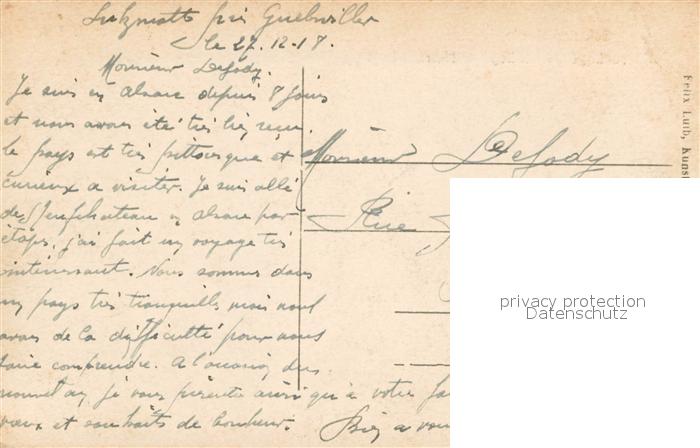 Sulzmatt près Guebwiller
le 27.12.18.
Monsieur Defody.
Je suis en Alsace depuis 8 jours
et nous avons été très bien reçu.
Le pays est très pittoresque et
curieux a visiter. Je suis allé
de Neufchateau en Alsace par
étaps, j'ai fait un voyage très
intéressant. Nous sommes dans
un pays très tranquille mais nous
avons de la difficulté pour nous
faire comprendre. A l'occasion du
nouvel an, je vous présente ainsi qu'à votre
vœux et souhaits de bonheur.
Bien a vous
Monsieur Defody
Rue
Felix Luib, Kunst
privacy protection
Datenschutz